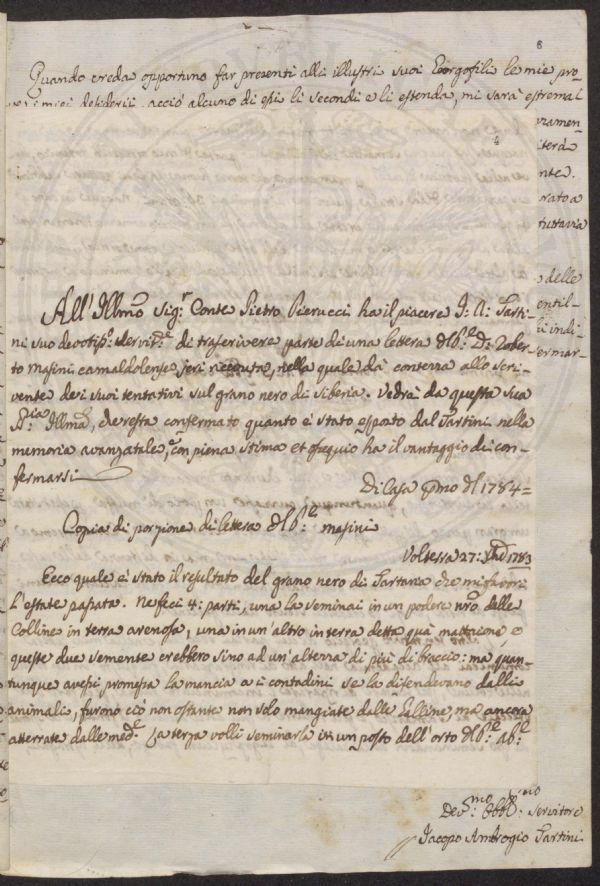 8
Quando creda opportuno far presenti alli illustri suoi Georgofili le mie pro
miei desiderii acciò alcuno di essi li secondi e li estenda, mi sarà estremal
ramen-
iterà
4
nte.
rato a
tuttavia
delle
entil-
indi-
fermar
All' Illmo Sigr. Conte Pietro Pierucci ha il piacere J: A: Tarti-
ni suo devotiss: servit: di trascrivere parte di una lettera del P: D: Rober-
to Masini camaldolense jeri ricevuta, nella quale dà contezza allo scri-
vente dei suoi tentativi sul grano nero di Siberia. Vedrà da questa sua
Sria Illma, che resta confermato quanto è stato esposto dal Tartini nella
memoria avanzatale, e con piena stima et ossequio ha il vantaggio di con-
fermarsi
Di Casa pmo del 1784=
Copia di porzione di lettera del P: Masini
Volterra 27: Xbre 1783
Ecco quale è stato il resultato del grano nero di Tartaria che mi favorì
l'estate passata. Ne feci 4: parti, una la seminai in un podere nro. delle
Colline in terra arenosa, una in un'altro in terra detta quà mattaione, e
queste due semente crebbero sino ad un'altezza di più di braccio: ma quan-
tunque avessi promessa la mancia a i contadini se la difendevano dalli
animali, furono ciò non ostante non solo mangiate dalle Galline, ma ancora
atterrate dalle med.e La terza volli seminarla in un posto dell'orto del P: ab:e
Devmo: Obblmo: Servitore
Jacopo Ambrogio Tartini